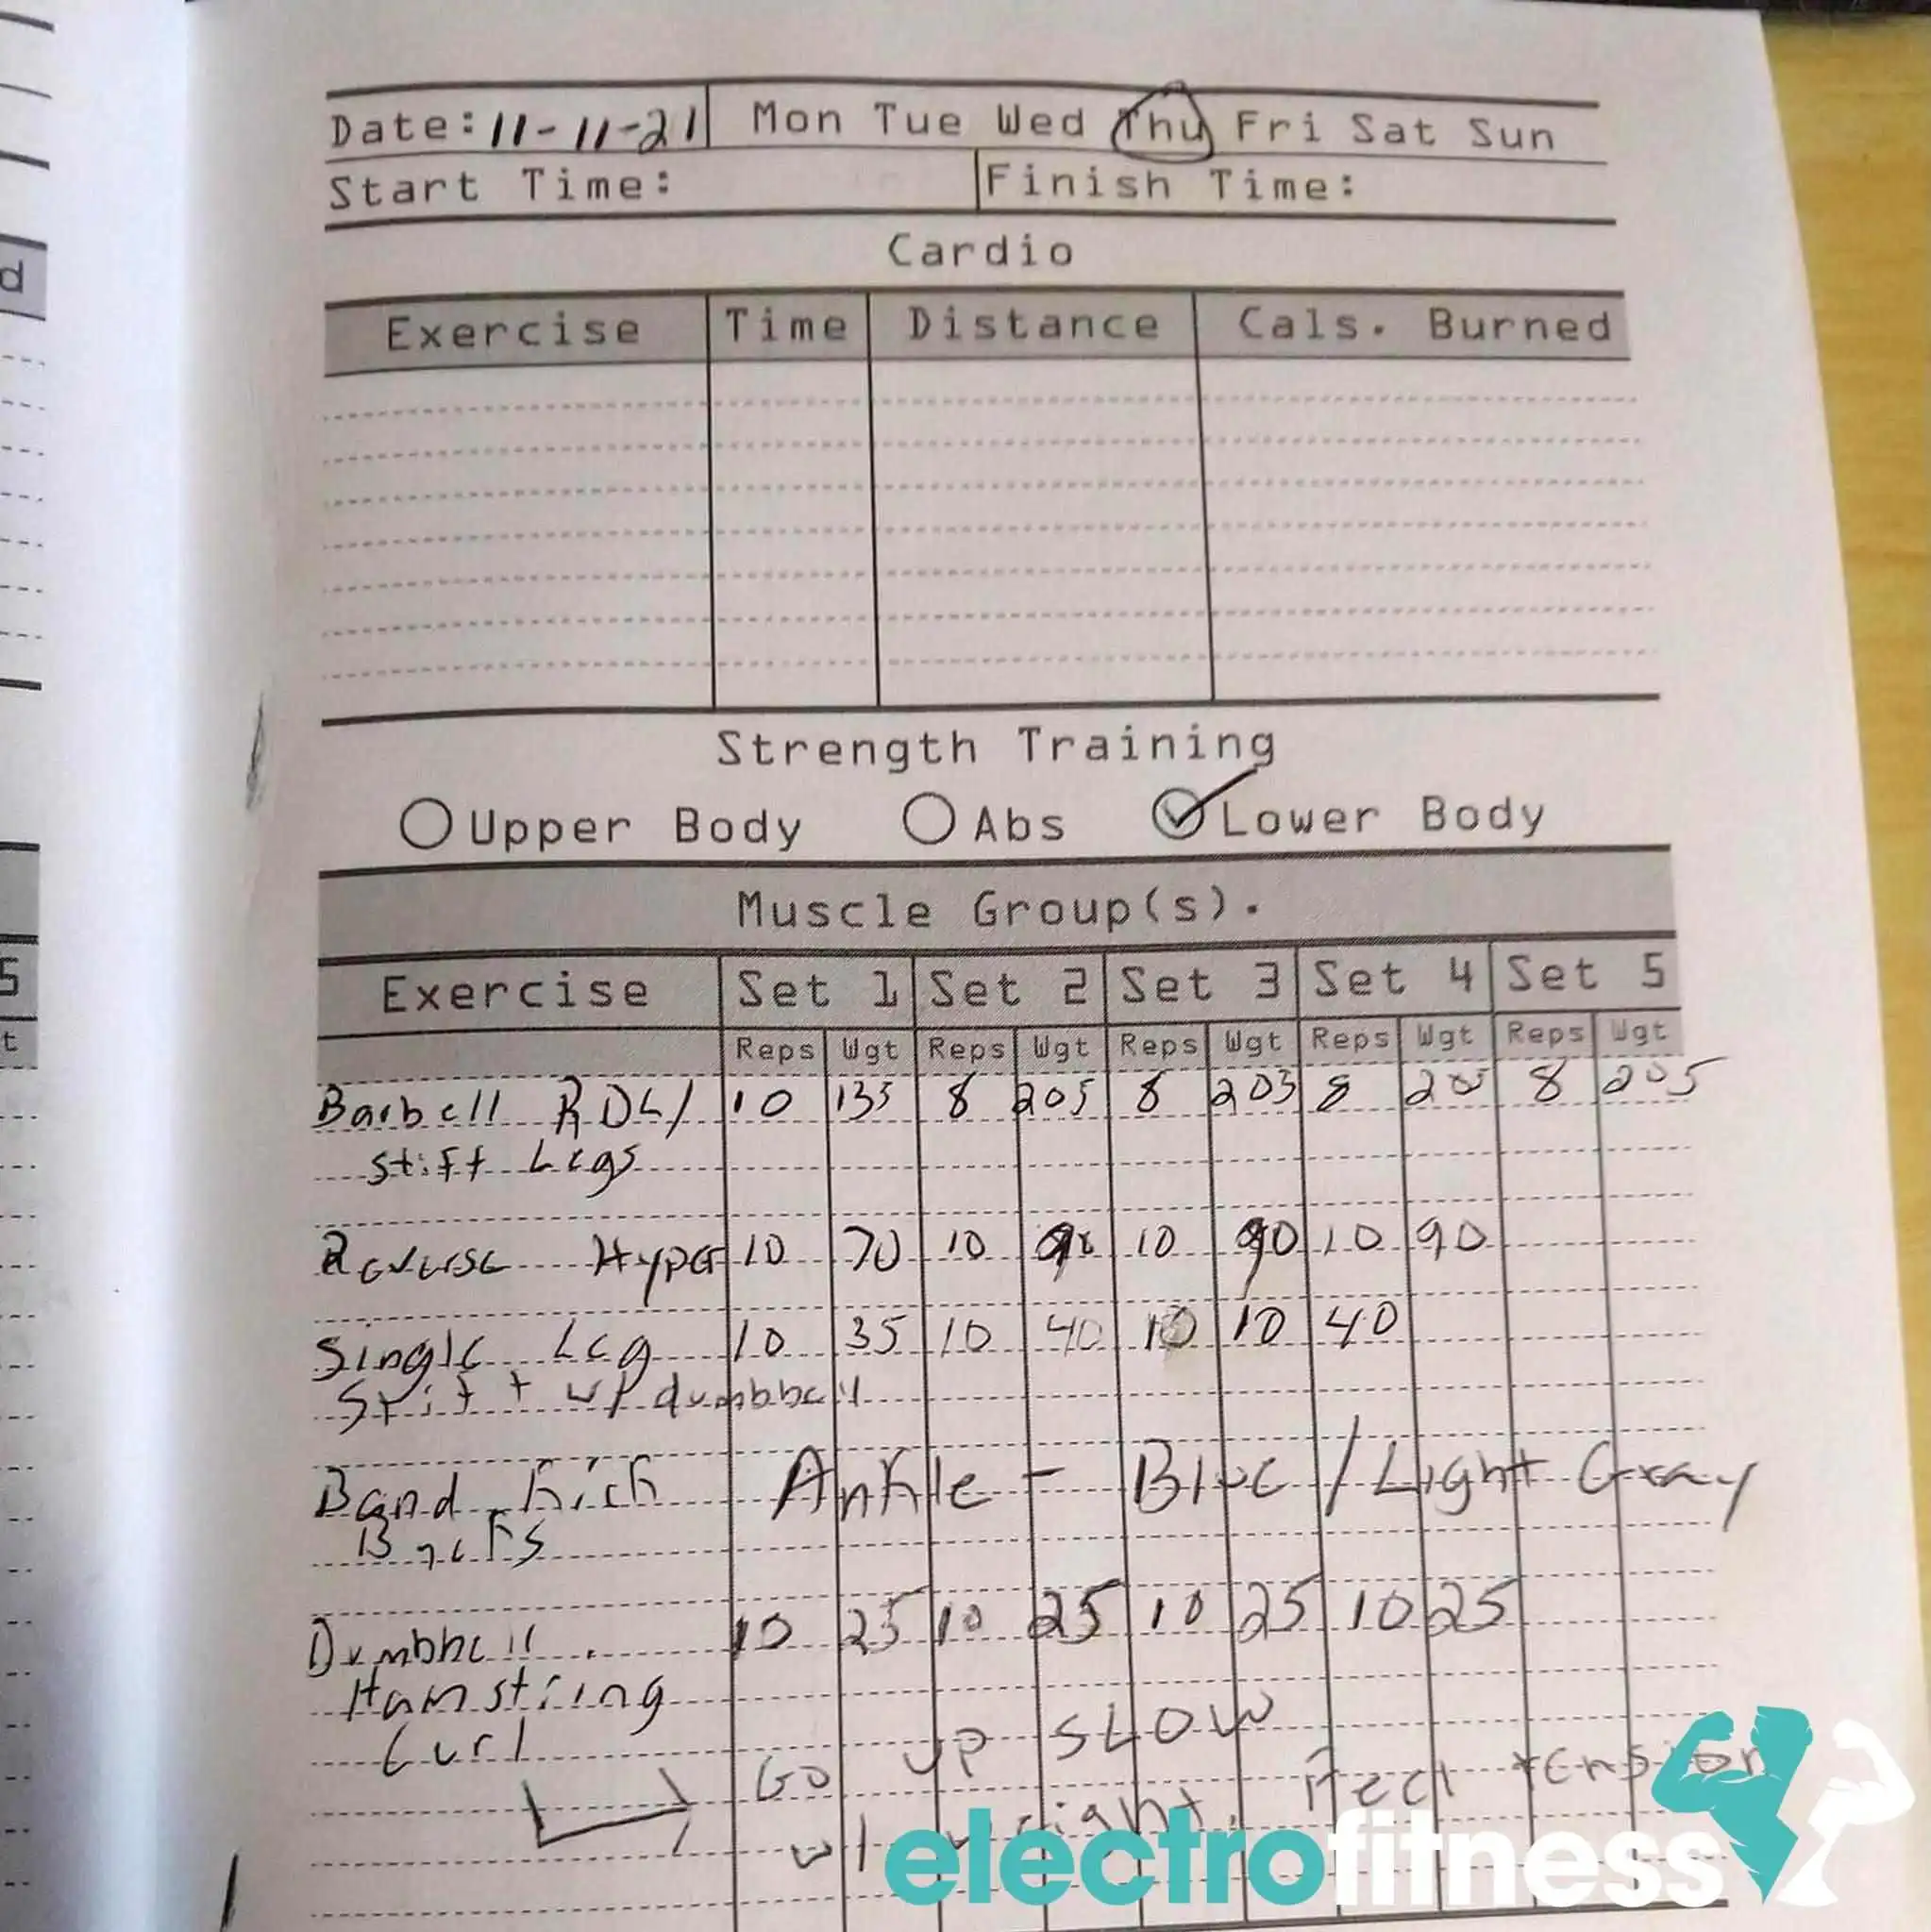 Date: 11-11-21 Mon Tue Wed Thu Fri Sat Sun
Start Time: Finish Time:
Cardio
Exercise Time Distance Cals. Burned
Strength Training
Upper Body Abs Lower Body
Muscle Group(s).
Exercise Set 1 Set 2 Set 3 Set 4 Set 5
Reps Wgt Reps Wgt Reps Wgt Reps Wgt Reps Wgt
Barbell RDL/ 10 135 8 205 8 205 8 205 8 205
Stiff Legs
Reverse Hyper 10 70 10 90 10 90 10 90
Single Leg 10 35 10 40 10 10 40
Stiff w/ dumbbell
Band Kick Ankle - Blue / Light Gray
Backs
Dumbbell 10 25 10 25 10 25 10 25
Hamstring
Curl
Go up SLOW
w/ weight. Feel tension
electrofitness
d
5
t